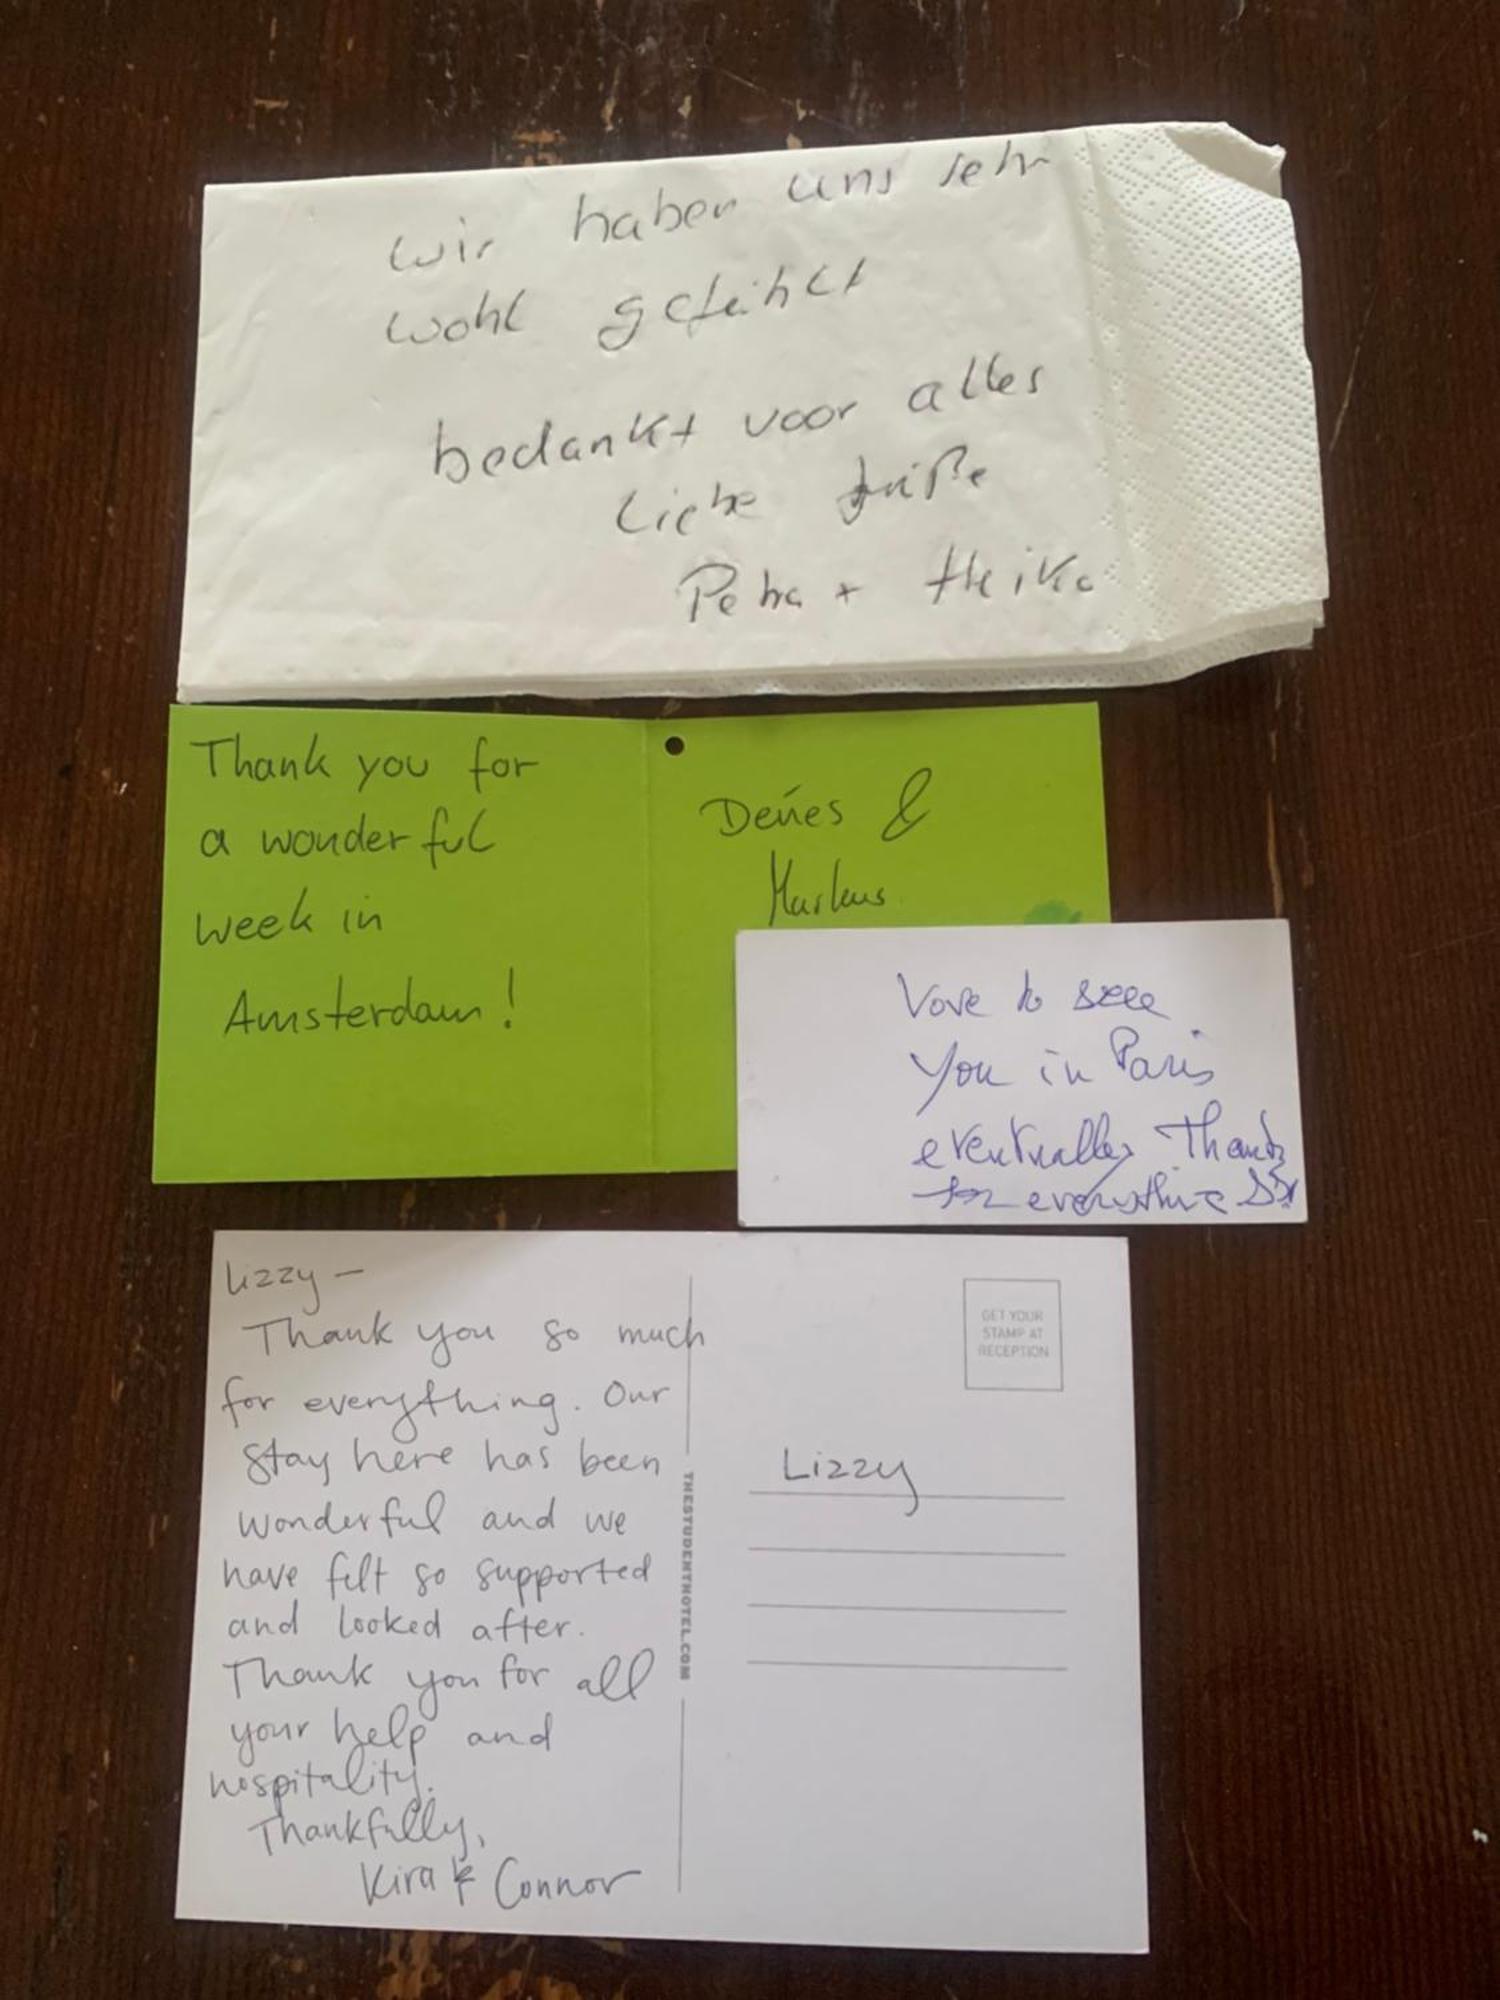 wir haben uns sehr
wohl gefühlt
bedankt voor alles
Liebe Grüße
Petra + Heike
Thank you for
a wonderful
week in
Amsterdam!
Dénes &
Markus
to seee
You in Paris
eventually Thanks
for everything
Lizzy –
Thank you so much
for everything. Our
stay here has been
wonderful and we
have felt so supported
and looked after.
Thank you for all
your help and
hospitality.
Thankfully,
Kira & Connor
THESTUDENTHOTEL.COM
GET YOUR
STAMP AT
RECEPTION
Lizzy